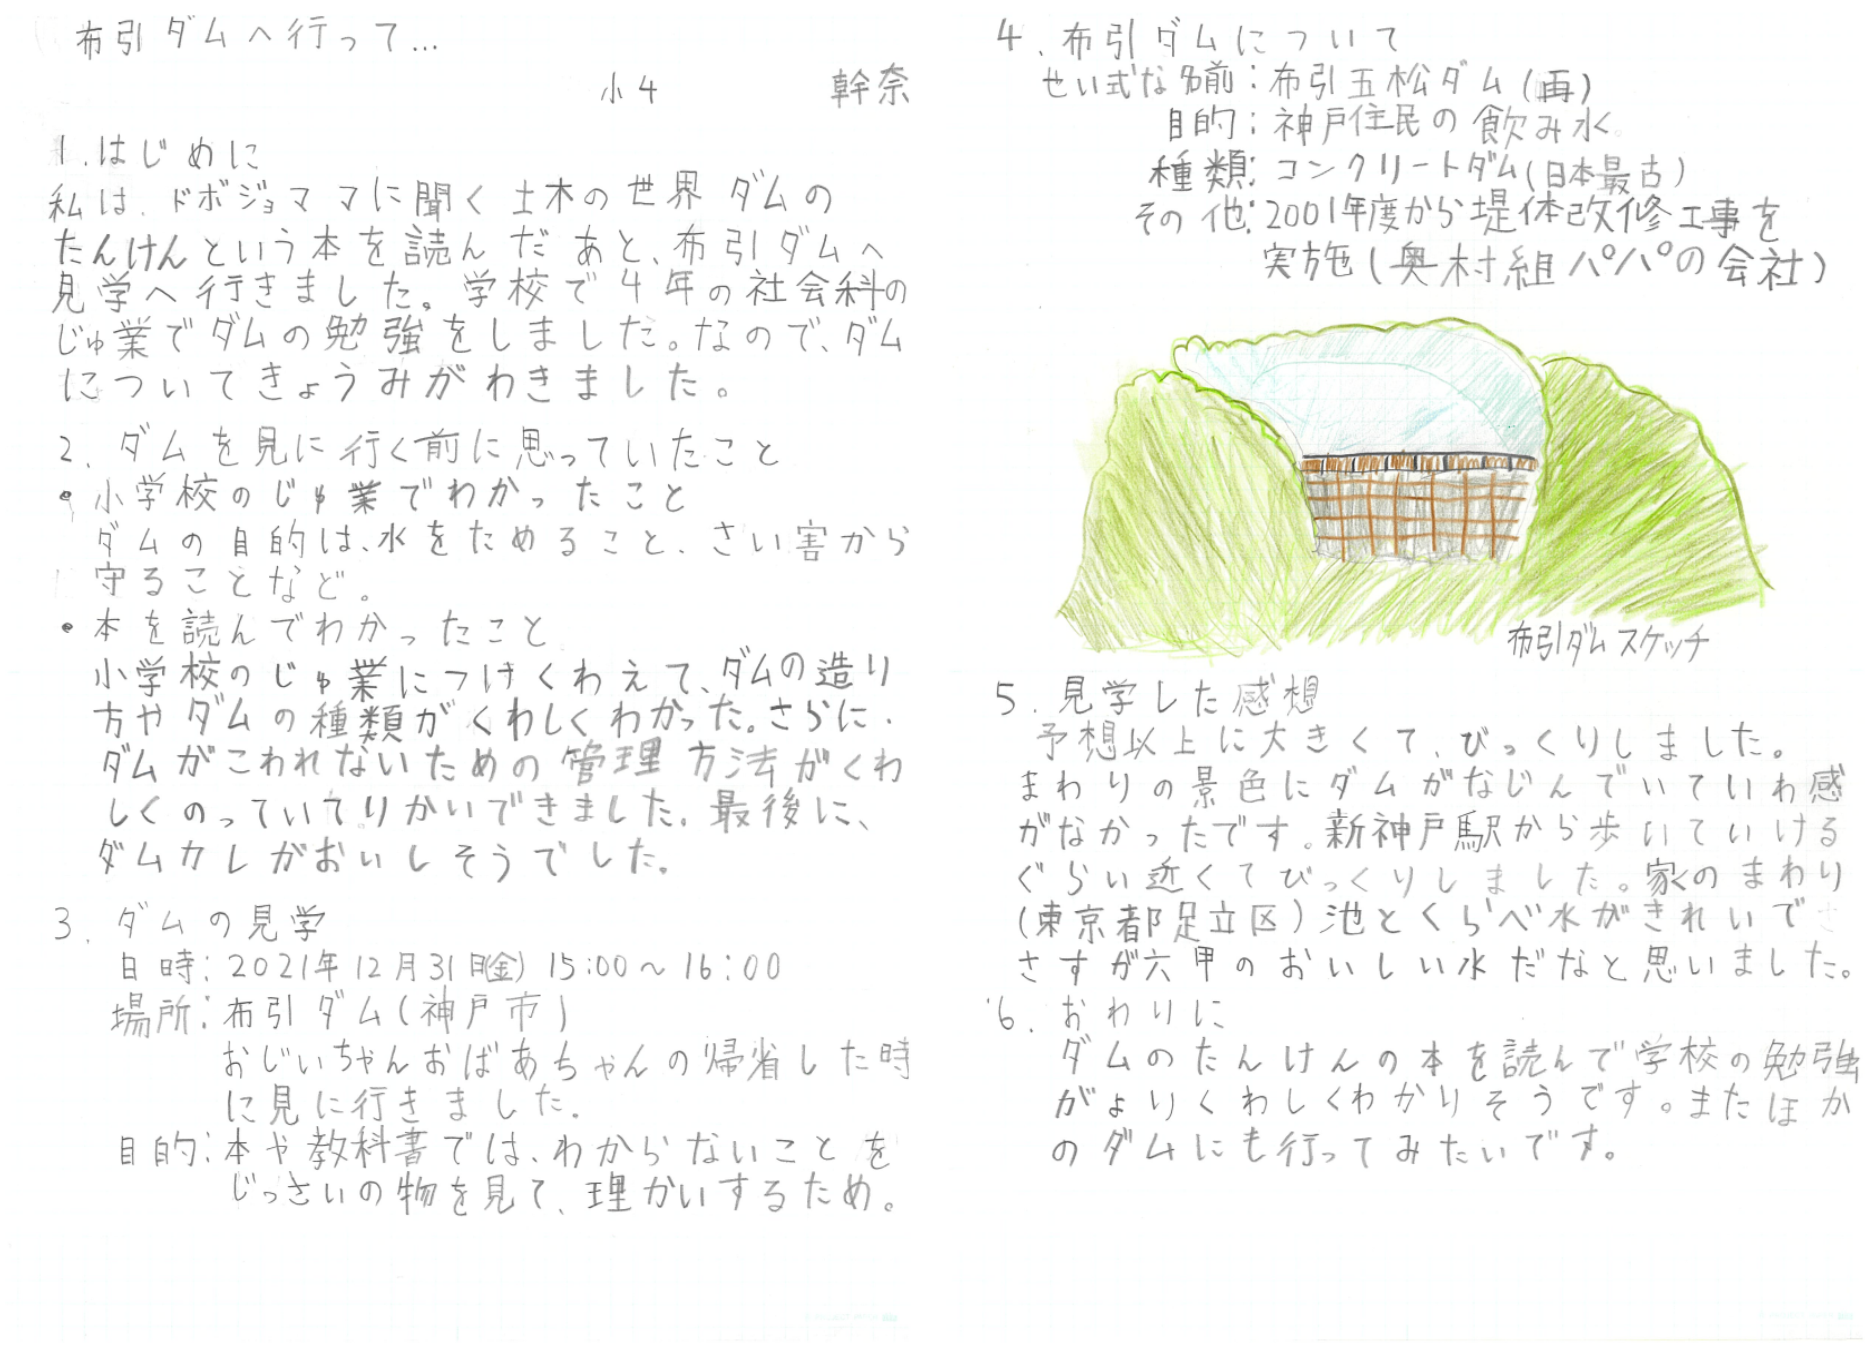 布引ダムへ行って…
小4 幹奈
1.はじめに
私は、ドボジョママに聞く土木の世界 ダムの
たんけんという本を読んだあと、布引ダムへ
見学へ行きました。学校で4年の社会科の
じゅ業でダムの勉強をしました。なので、ダム
についてきょうみがわきました。
2.ダムを見に行く前に思っていたこと
・小学校のじゅ業でわかったこと
ダムの目的は、水をためること、さい害から
守ることなど。
・本を読んでわかったこと
小学校のじゅ業につけくわえて、ダムの造り
方やダムの種類がくわしくわかった。さらに、
ダムがこわれないための管理方法がくわ
しくのっていてりかいできました。最後に、
ダムカレがおいしそうでした。
3.ダムの見学
日時:2021年12月31日(金)15:00~16:00
場所:布引ダム(神戸市)
おじいちゃんおばあちゃんの帰省した時
に見に行きました。
目的:本や教科書では、わからないことを
じっさいの物を見て、理かいするため。
4.布引ダムについて
せい式な名前:布引五松ダム(再)
目的:神戸住民の飲み水
種類:コンクリートダム(日本最古)
その他:2001年度から堤体改修工事を
実施(奥村組パパの会社)
布引ダムスケッチ
5.見学した感想
予想以上に大きくて、びっくりしました。
まわりの景色にダムがなじんでいていわ感
がなかったです。新神戸駅から歩いていける
ぐらい近くてびっくりしました。家のまわり
(東京都足立区)池とくらべ水がきれいで
さすが六甲のおいしい水だなと思いました。
6.おわりに
ダムのたんけんの本を読んで学校の勉強
がよりくわしくわかりそうです。またほか
のダムにも行ってみたいです。